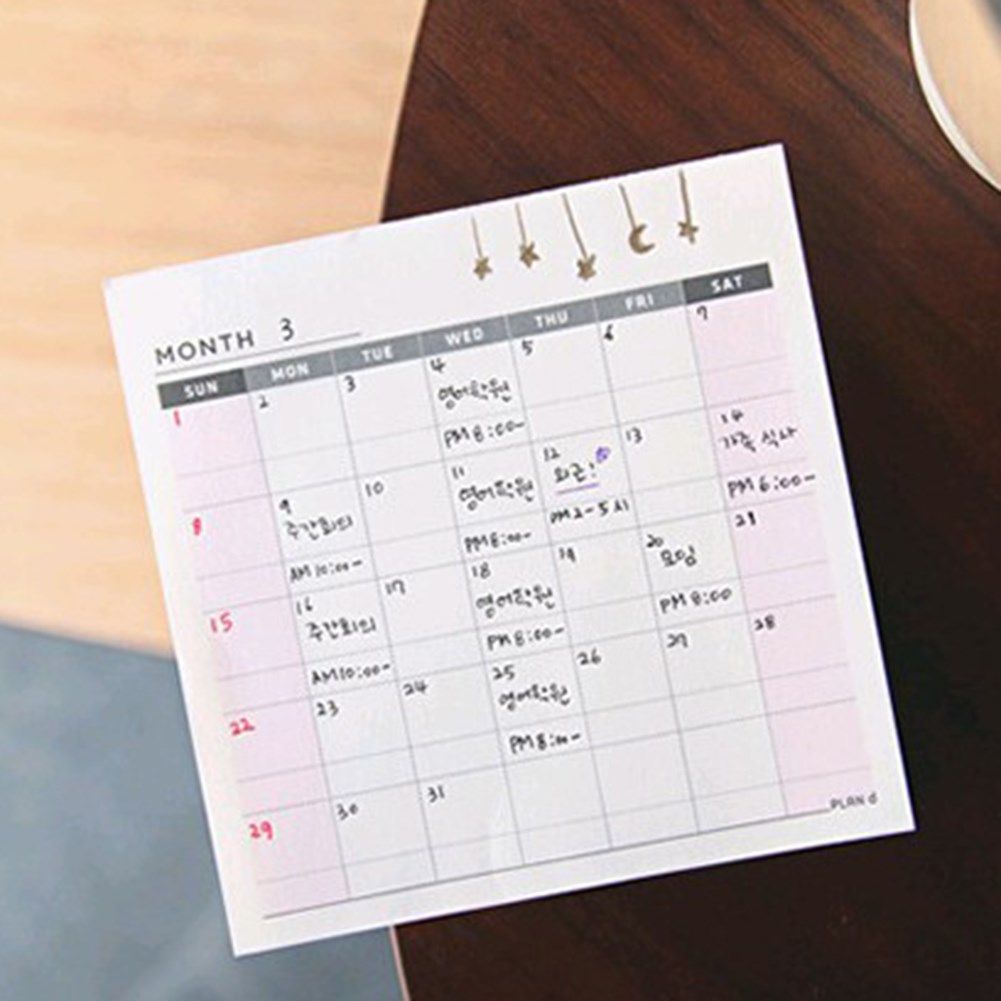 MONTH 3
SUN MON TUE WED THU FRI SAT
1 2 3 4 5 6 7
영어학원
PM 8:00~
8 9 10 11 12 13 14
주간회의 영어학원 외근! 가족 식사
AM 10:00~ PM 8:00~ PM 2~5시 PM 6:00~
15 16 17 18 19 20 21
주간회의 영어학원 모임
AM 10:00~ PM 8:00~ PM 8:00
22 23 24 25 26 27 28
영어학원
PM 8:00~
29 30 31
PLAN d